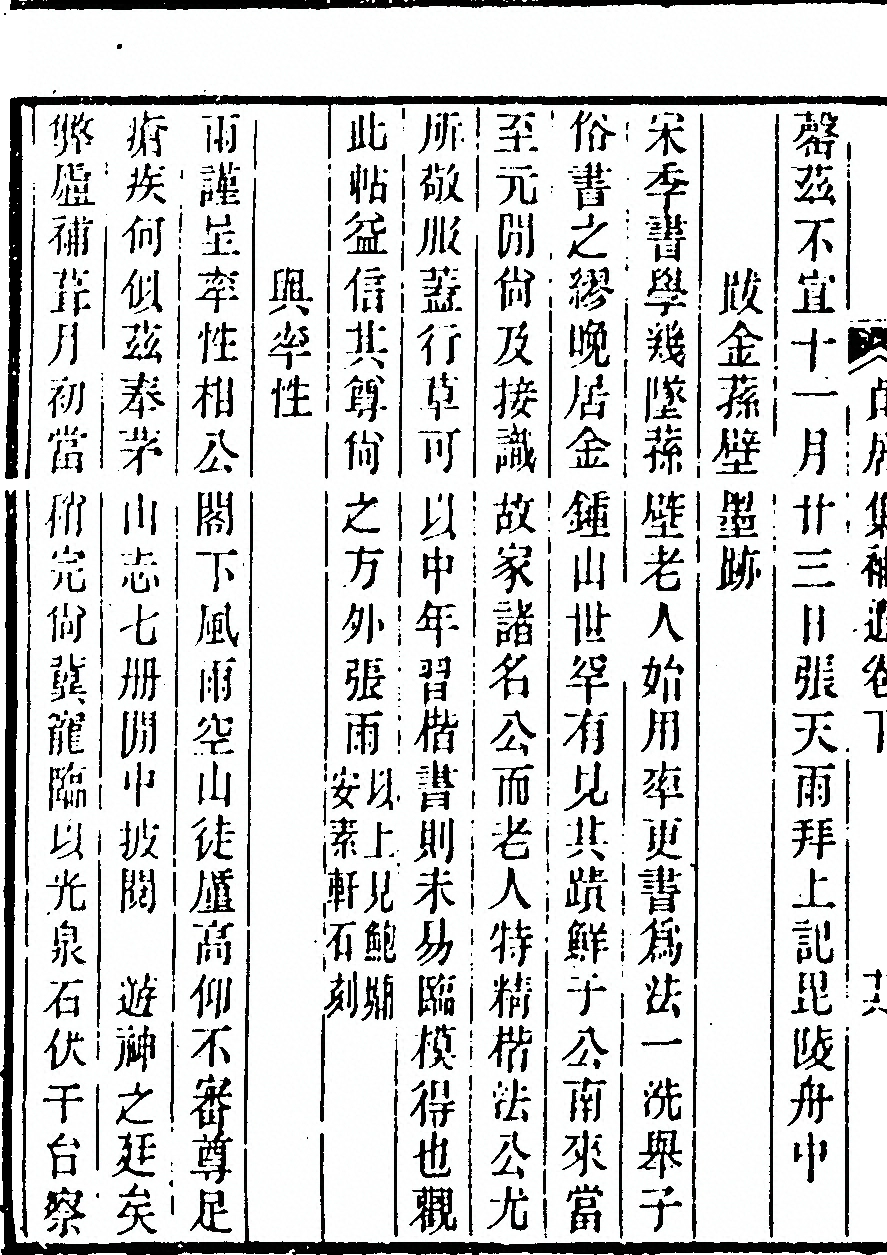 貞居集補遺卷下
十六
罄茲不宣十一月廿三日張天雨拜上記毘陵舟中
跋金蓀壁墨跡
宋季書學幾墜蓀壁老人始用率更書爲法一洗舉子
俗書之繆晚居金鍾山世罕有見其蹟鮮于公南來當
至元閒尙及接識故家諸名公而老人特精楷法公尤
所敬服蓋行草可以中年習楷書則未易臨模得也觀
此帖益信其尊尙之方外張雨以上見鮑
安素軒石刻
與率性
雨謹呈率性相公閣下風雨空山徒廬高仰不審尊足
瘠疾何似茲奉茅山志七册閒中披閱 遊神之廷矣
弊廬補葺月初當稍完尙冀寵臨以光泉石伏干台察